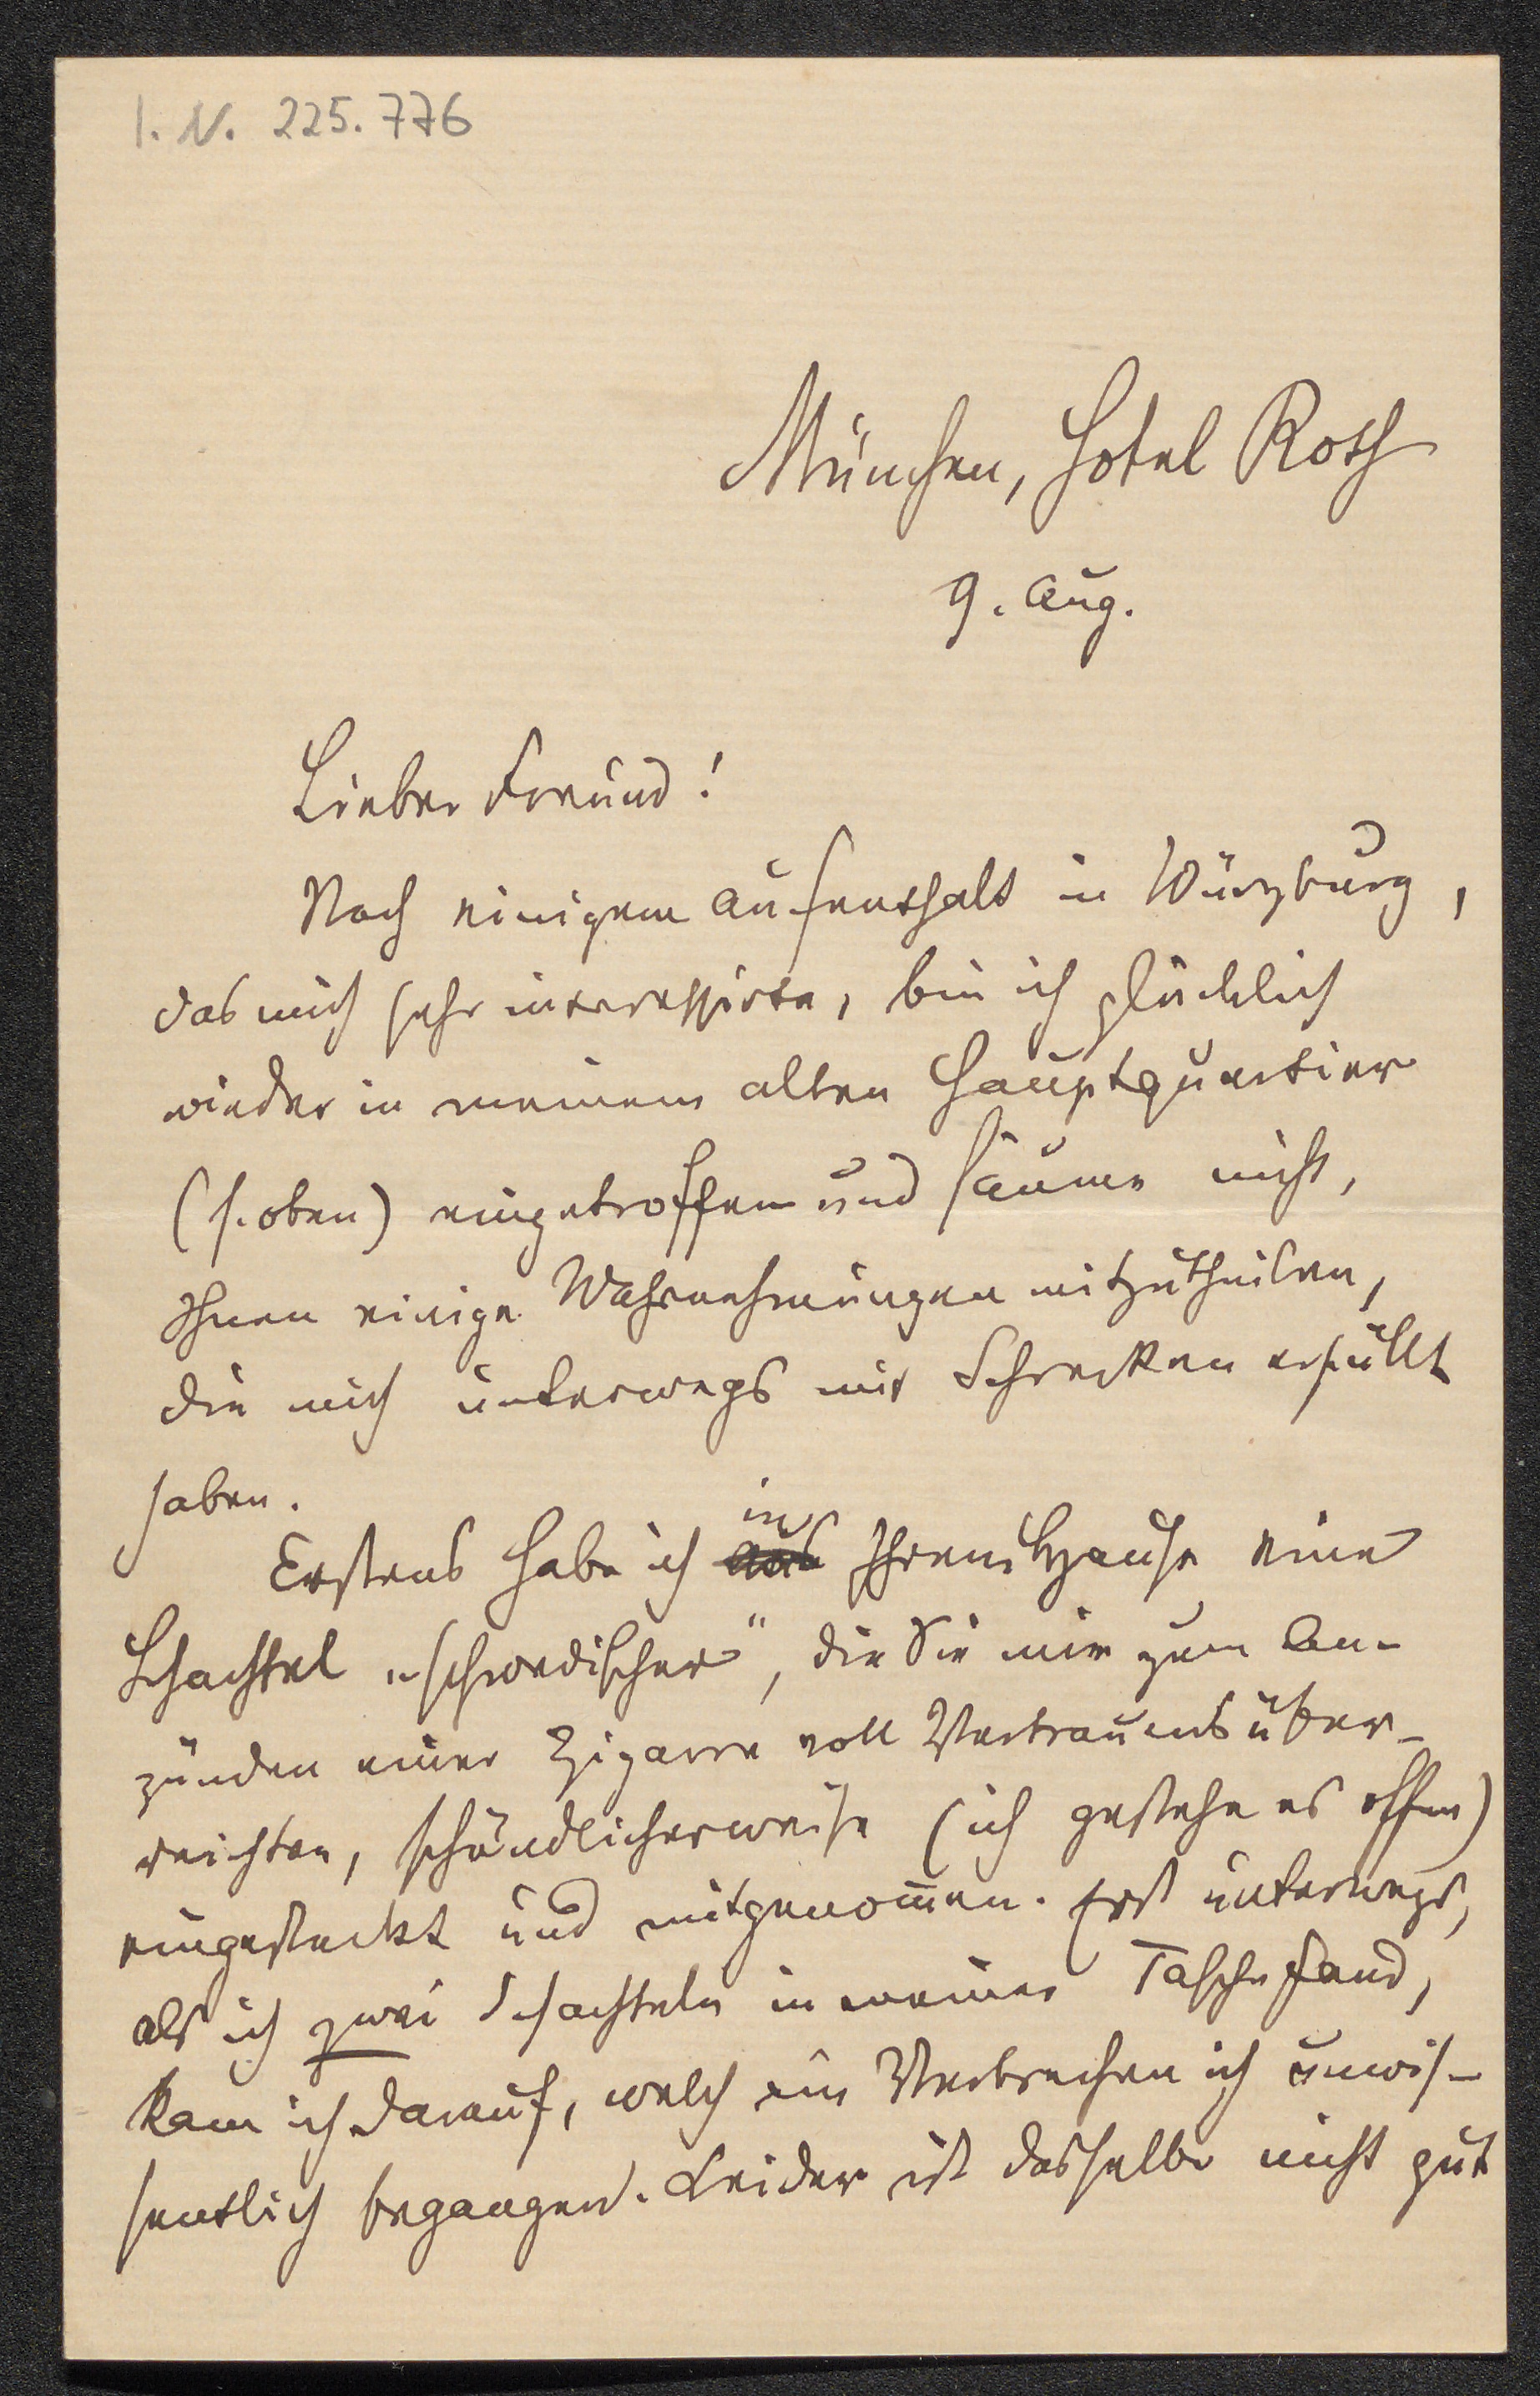 I. N. 225.776
München, Hotel Roth
9. Aug.
Lieber Freund!
Nach einigem Aufenthalt in Würzburg,
das mich sehr interessirte, bin ich glücklich
wieder in meinem alten Hauptquartier
(s. oben) eingetroffen und säume nicht,
Ihnen einige Wahrnehmungen mitzutheilen,
die mich unterwegs mit Schrecken erfüllt
haben.
in
Erstens habe ich aus Ihrem Hause eine
Schachtel „schwedischer“, die Sie mir zum An-
zünden einer Zigarre voll Vertrauens über-
reichten, schändlicherweise (ich gestehe es offen)
eingesteckt und mitgenom̅en. Erst unterwegs,
als ich zwei Schachteln in meiner Tasche fand,
kam ich darauf, welch ein Verbrechen ich unwis-
sentlich begangen. Leider ist dasselbe nicht gut